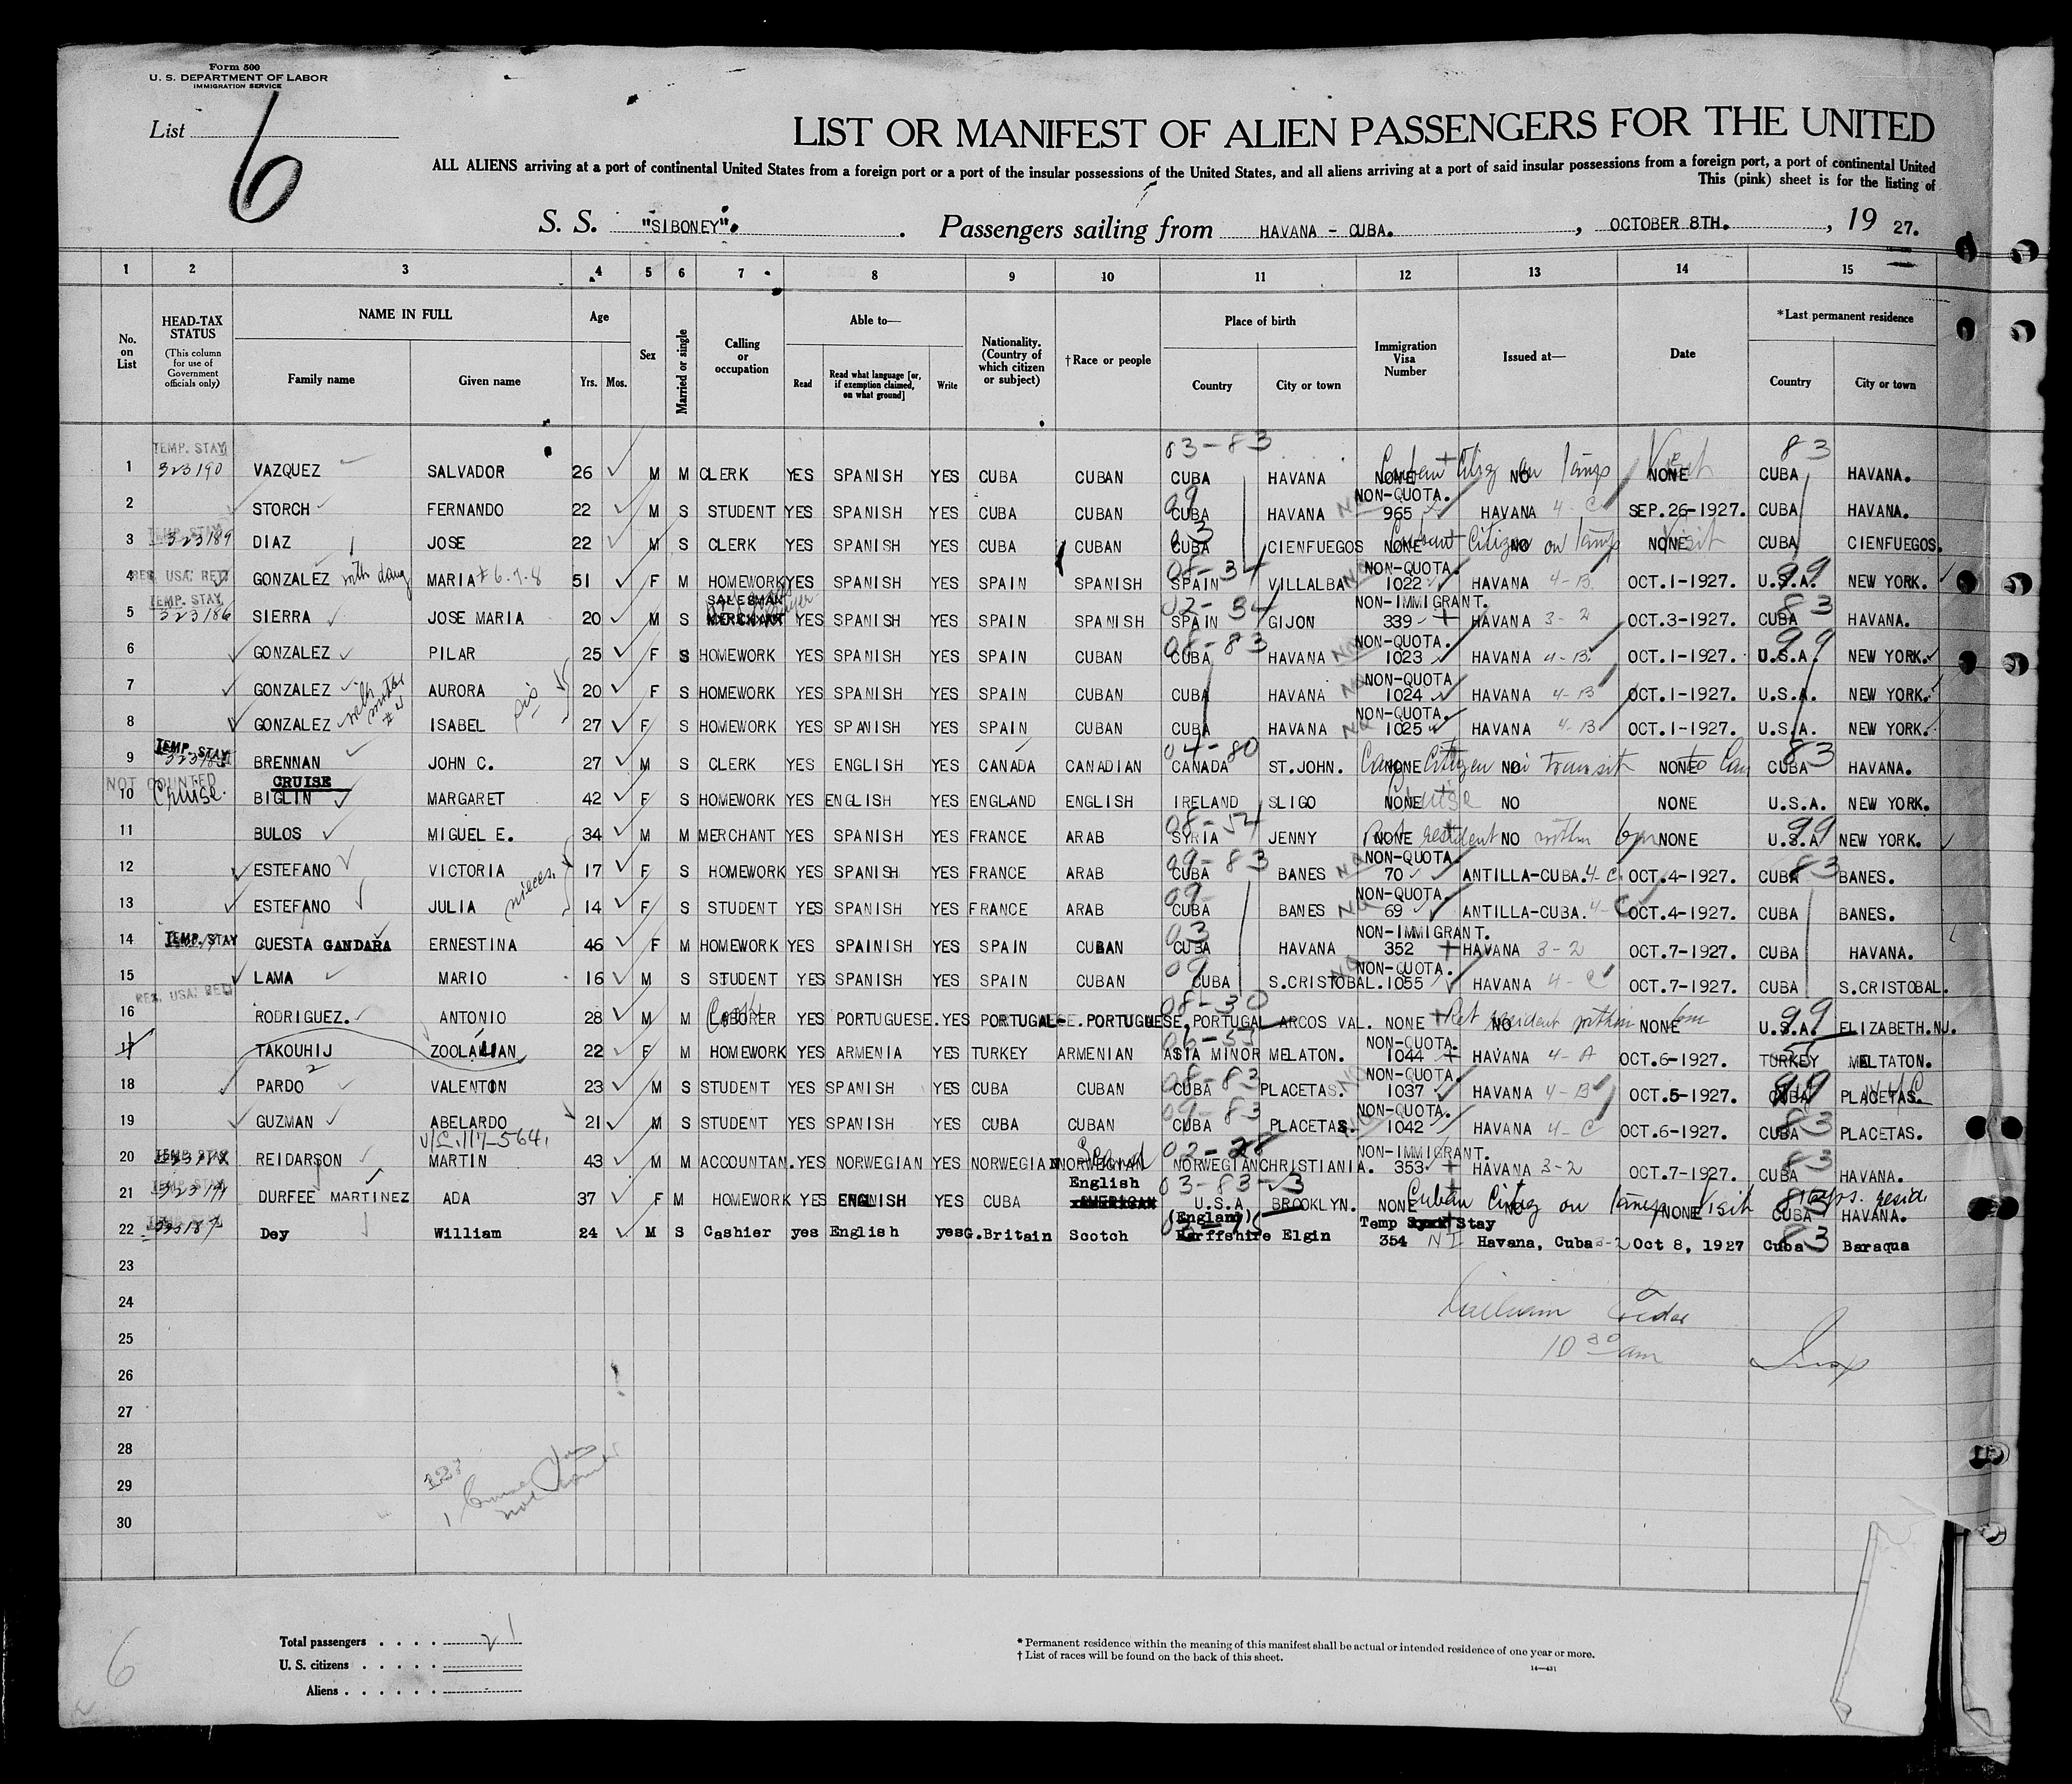 Form 500
U. S. DEPARTMENT OF LABOR
IMMIGRATION SERVICE
List 6
LIST OR MANIFEST OF ALIEN PASSENGERS FOR THE UNITED
ALL ALIENS arriving at a port of continental United States from a foreign port or a port of the insular possessions of the United States, and all aliens arriving at a port of said insular possessions from a foreign port, a port of continental United
This (pink) sheet is for the listing of
S. S. "SIBONEY". Passengers sailing from HAVANA - CUBA. , OCTOBER 8TH. , 19 27.
1 2 3 4 5 6 7 8 9 10 11 12 13 14 15
No. on List
HEAD-TAX STATUS (This column for use of Government officials only)
NAME IN FULL
Family name Given name
Age
Yrs. Mos.
Sex
Married or single
Calling or occupation
Able to—
Read Read what language [or, if exemption claimed, on what ground] Write
Nationality. (Country of which citizen or subject)
†Race or people
Place of birth
Country City or town
Immigration Visa Number
Issued at—
Date
*Last permanent residence
Country City or town
TEMP. STAY 03-83 83
1 323190 VAZQUEZ SALVADOR 26 M M CLERK YES SPANISH YES CUBA CUBAN CUBA HAVANA NONE NO NONE CUBA HAVANA.
NON-QUOTA.
2 STORCH FERNANDO 22 M S STUDENT YES SPANISH YES CUBA CUBAN CUBA HAVANA 965 HAVANA 4-C SEP.26-1927. CUBA HAVANA.
TEMP. STAY
3 323189 DIAZ JOSE 22 M S CLERK YES SPANISH YES CUBA CUBAN CUBA CIENFUEGOS NONE Cuban Citizen NO on temp NONE Visit CUBA CIENFUEGOS.
RES. USA: RET. NON-QUOTA.
4 GONZALEZ with daug MARIA #6-7-8 51 F M HOMEWORK YES SPANISH YES SPAIN SPANISH SPAIN VILLALBA 1022 HAVANA 4-B OCT.1-1927. U.S.A. 99 NEW YORK.
TEMP. STAY SALESMAN NON-IMMIGRANT.
5 323186 SIERRA JOSE MARIA 20 M S MERCHANT YES SPANISH YES SPAIN SPANISH SPAIN GIJON 339 HAVANA 3-2 OCT.3-1927. CUBA 83 HAVANA.
08-83 NON-QUOTA.
6 GONZALEZ PILAR 25 F S HOMEWORK YES SPANISH YES SPAIN CUBAN CUBA HAVANA 1023 HAVANA 4-B OCT.1-1927. U.S.A. 99 NEW YORK.
NON-QUOTA
7 GONZALEZ AURORA 20 F S HOMEWORK YES SPANISH YES SPAIN CUBAN CUBA HAVANA 1024 HAVANA 4-B OCT.1-1927. U.S.A. NEW YORK.
with mother sis NON-QUOTA.
8 GONZALEZ ISABEL 27 F S HOMEWORK YES SPANISH YES SPAIN CUBAN CUBA HAVANA 1025 HAVANA 4-B OCT.1-1927. U.S.A. NEW YORK.
TEMP. STAY 04-80 83
9 BRENNAN JOHN C. 27 M S CLERK YES ENGLISH YES CANADA CANADIAN CANADA ST.JOHN. NONE Citizen NO in transit NONE to Can CUBA HAVANA.
NOT COUNTED CRUISE
10 Cruise. BIGLIN MARGARET 42 F S HOMEWORK YES ENGLISH YES ENGLAND ENGLISH IRELAND SLIGO NONE NO NONE U.S.A. NEW YORK.
11 BULOS MIGUEL E. 34 M M MERCHANT YES SPANISH YES FRANCE ARAB SYRIA JENNY NONE Ret resident NO within 6m NONE U.S.A 99 NEW YORK.
09-83 NON-QUOTA.
12 ESTEFANO VICTORIA 17 F S HOMEWORK YES SPANISH YES FRANCE ARAB CUBA BANES 70 ANTILLA-CUBA. 4-C OCT.4-1927. CUBA 83 BANES.
nieces NON-QUOTA.
13 ESTEFANO JULIA 14 F S STUDENT YES SPANISH YES FRANCE ARAB CUBA BANES 69 ANTILLA-CUBA. 4-C OCT.4-1927. CUBA BANES.
03 NON-IMMIGRANT.
14 TEMP. STAY CUESTA GANDARA ERNESTINA 46 F M HOMEWORK YES SPAINISH YES SPAIN CUBAN CUBA HAVANA 352 HAVANA 3-2 OCT.7-1927. CUBA HAVANA.
09 NON-QUOTA.
15 LAMA MARIO 16 M S STUDENT YES SPANISH YES SPAIN CUBAN CUBA S.CRISTOBAL. 1055 HAVANA 4-C OCT.7-1927. CUBA S.CRISTOBAL.
RES. USA: RET. 08-30
16 RODRIGUEZ. ANTONIO 28 M M LABORER YES PORTUGUESE. YES PORTUGAL- PORTUGUESE. PORTUGAL ARCOS VAL. NONE Ret NO resident within NONE 6m U.S.A. 99 ELIZABETH.NJ.
NON-QUOTA.
17 TAKOUHIJ ZOOLALIAN 22 F M HOMEWORK YES ARMENIA YES TURKEY ARMENIAN ASIA MINOR MELATON. 1044 HAVANA 4-A OCT.6-1927. TURKEY MELTATON.
08-83 NON-QUOTA.
18 PARDO VALENTON 23 M S STUDENT YES SPANISH YES CUBA CUBAN CUBA PLACETAS. 1037 HAVANA 4-B OCT.5-1927. CUBA 99 PLACETAS.
09-83 NON-QUOTA.
19 GUZMAN ABELARDO 21 M S STUDENT YES SPANISH YES CUBA CUBAN CUBA PLACETAS. 1042 HAVANA 4-C OCT.6-1927. CUBA 83 PLACETAS.
TEMP. STAY Scand 02-28 NON-IMMIGRANT.
20 REIDARSON MARTIN 43 M M ACCOUNTAN. YES NORWEGIAN YES NORWEGIAN NORWEGIAN NORWEGIAN CHRISTIANIA. 353 HAVANA 3-2 OCT.7-1927. CUBA 83 HAVANA.
TEMP. STAY English
21 DURFEE MARTINEZ ADA 37 F M HOMEWORK YES ENGLISH YES CUBA AMERICAN U.S.A BROOKLYN. NONE Cuban Citizen NO on temp NONE Visit CUBA HAVANA.
(England) Temp Stay
22 Dey William 24 M S Cashier yes English yes G.Britain Scotch Elgin 354 NI Havana, Cuba 3-2 Oct 8, 1927 Cuba 83 Baraqua
23
24 William
25 10 30 am Insp
26
27
28
29
30
Total passengers . . . . 21
U. S. citizens . . . . .
Aliens . . . . . .
6
* Permanent residence within the meaning of this manifest shall be actual or intended residence of one year or more.
† List of races will be found on the back of this sheet.
14—431